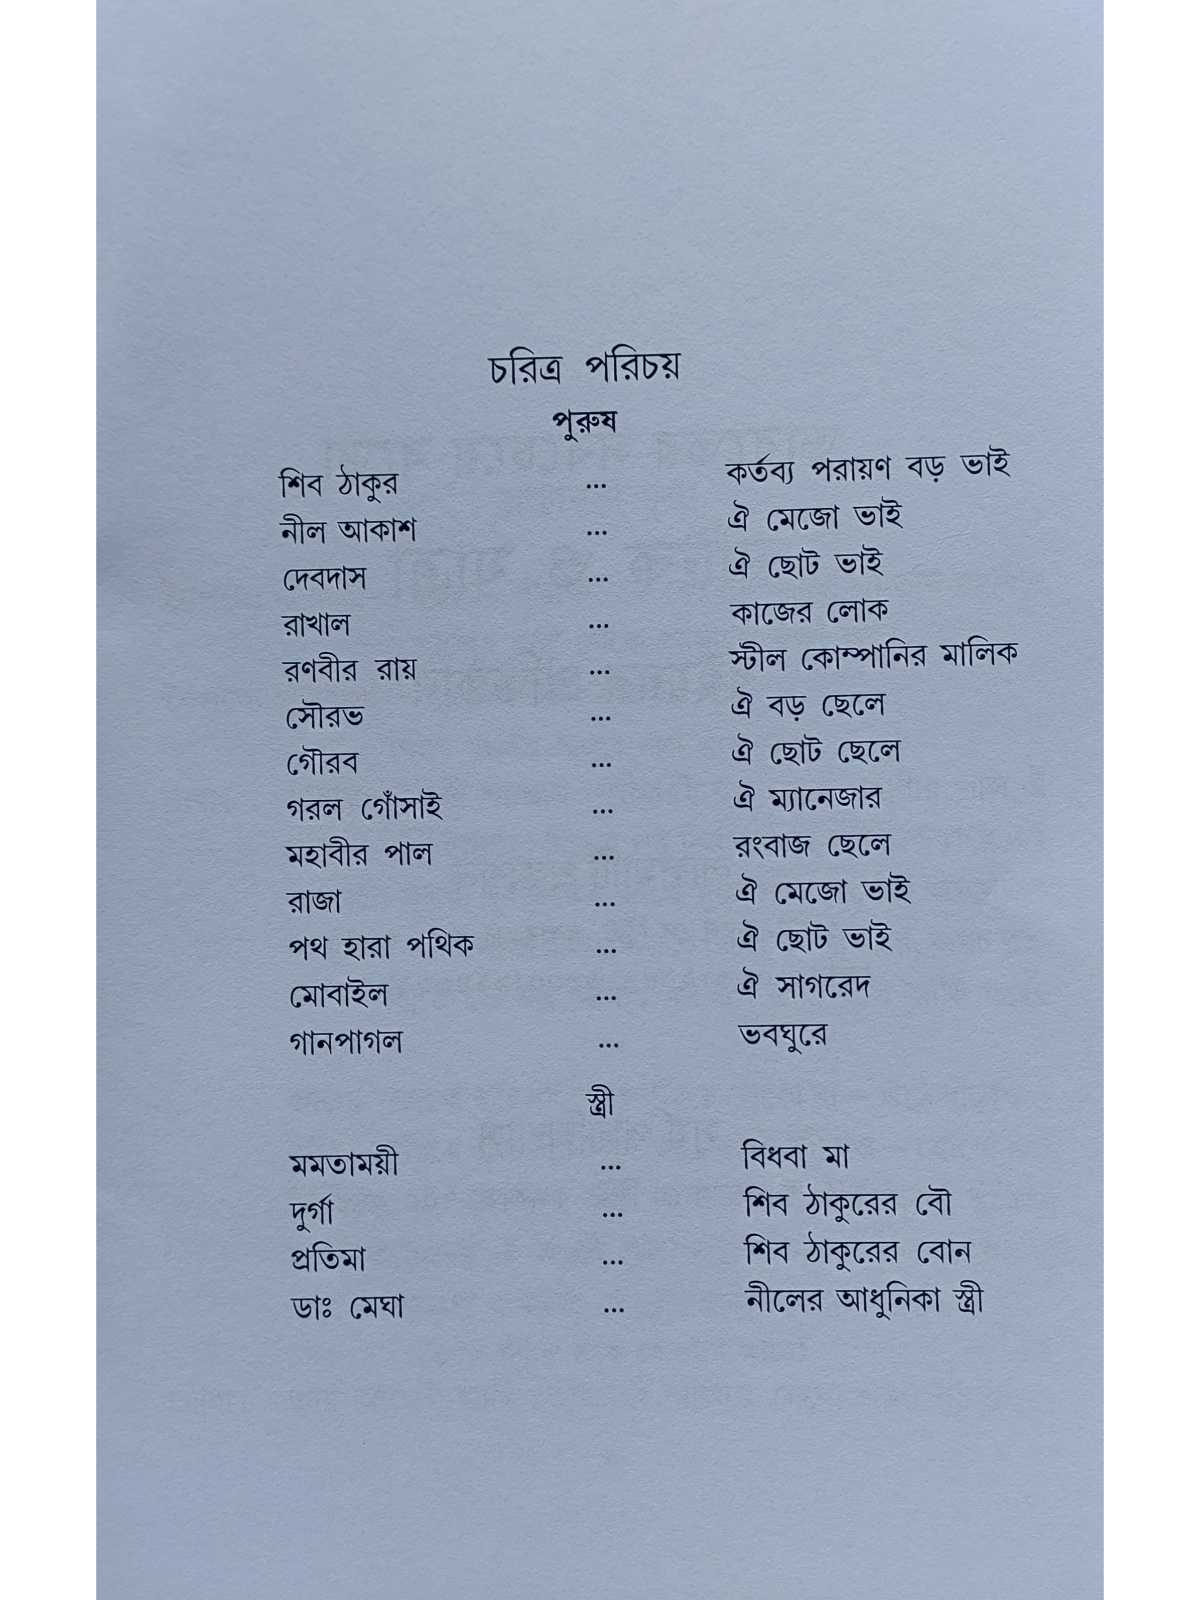 চরিত্র পরিচয়
পুরুষ
শিব ঠাকুর ... কর্তব্য পরায়ণ বড় ভাই
নীল আকাশ ... ঐ মেজো ভাই
দেবদাস ... ঐ ছোট ভাই
রাখাল ... কাজের লোক
রণবীর রায় ... স্টীল কোম্পানির মালিক
সৌরভ ... ঐ বড় ছেলে
গৌরব ... ঐ ছোট ছেলে
গরল গোঁসাই ... ঐ ম্যানেজার
মহাবীর পাল ... রংবাজ ছেলে
রাজা ... ঐ মেজো ভাই
পথ হারা পথিক ... ঐ ছোট ভাই
মোবাইল ... ঐ সাগরেদ
গানপাগল ... ভবঘুরে
স্ত্রী
মমতাময়ী ... বিধবা মা
দুর্গা ... শিব ঠাকুরের বৌ
প্রতিমা ... শিব ঠাকুরের বোন
ডাঃ মেঘা ... নীলের আধুনিকা স্ত্রী